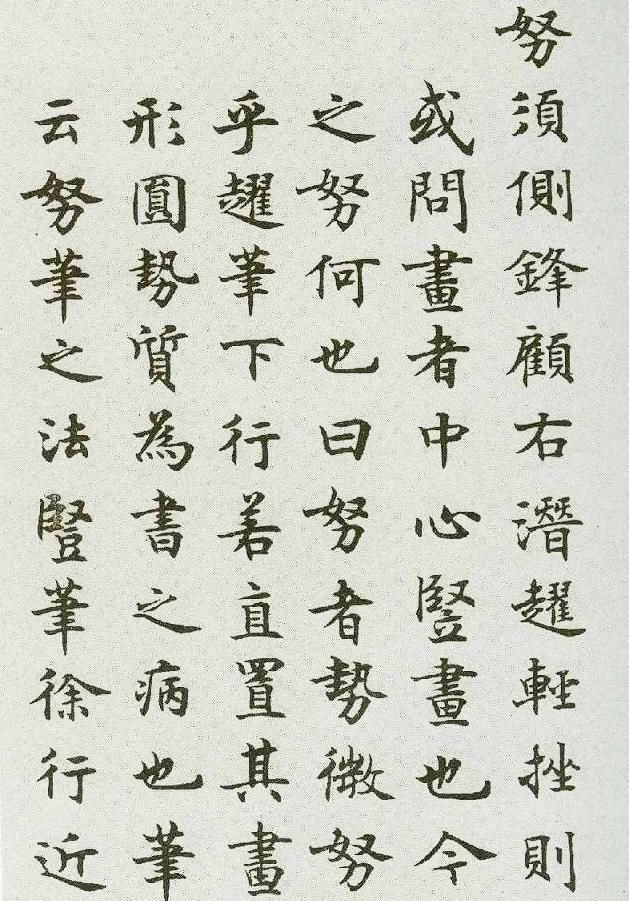 努須側鋒顧右潛趯輕挫則
或問畫者中心豎畫也今
之努何也曰努者勢微努
乎趯筆下行若直置其畫
形圓勢質為書之病也筆
云努筆之法豎筆徐行近